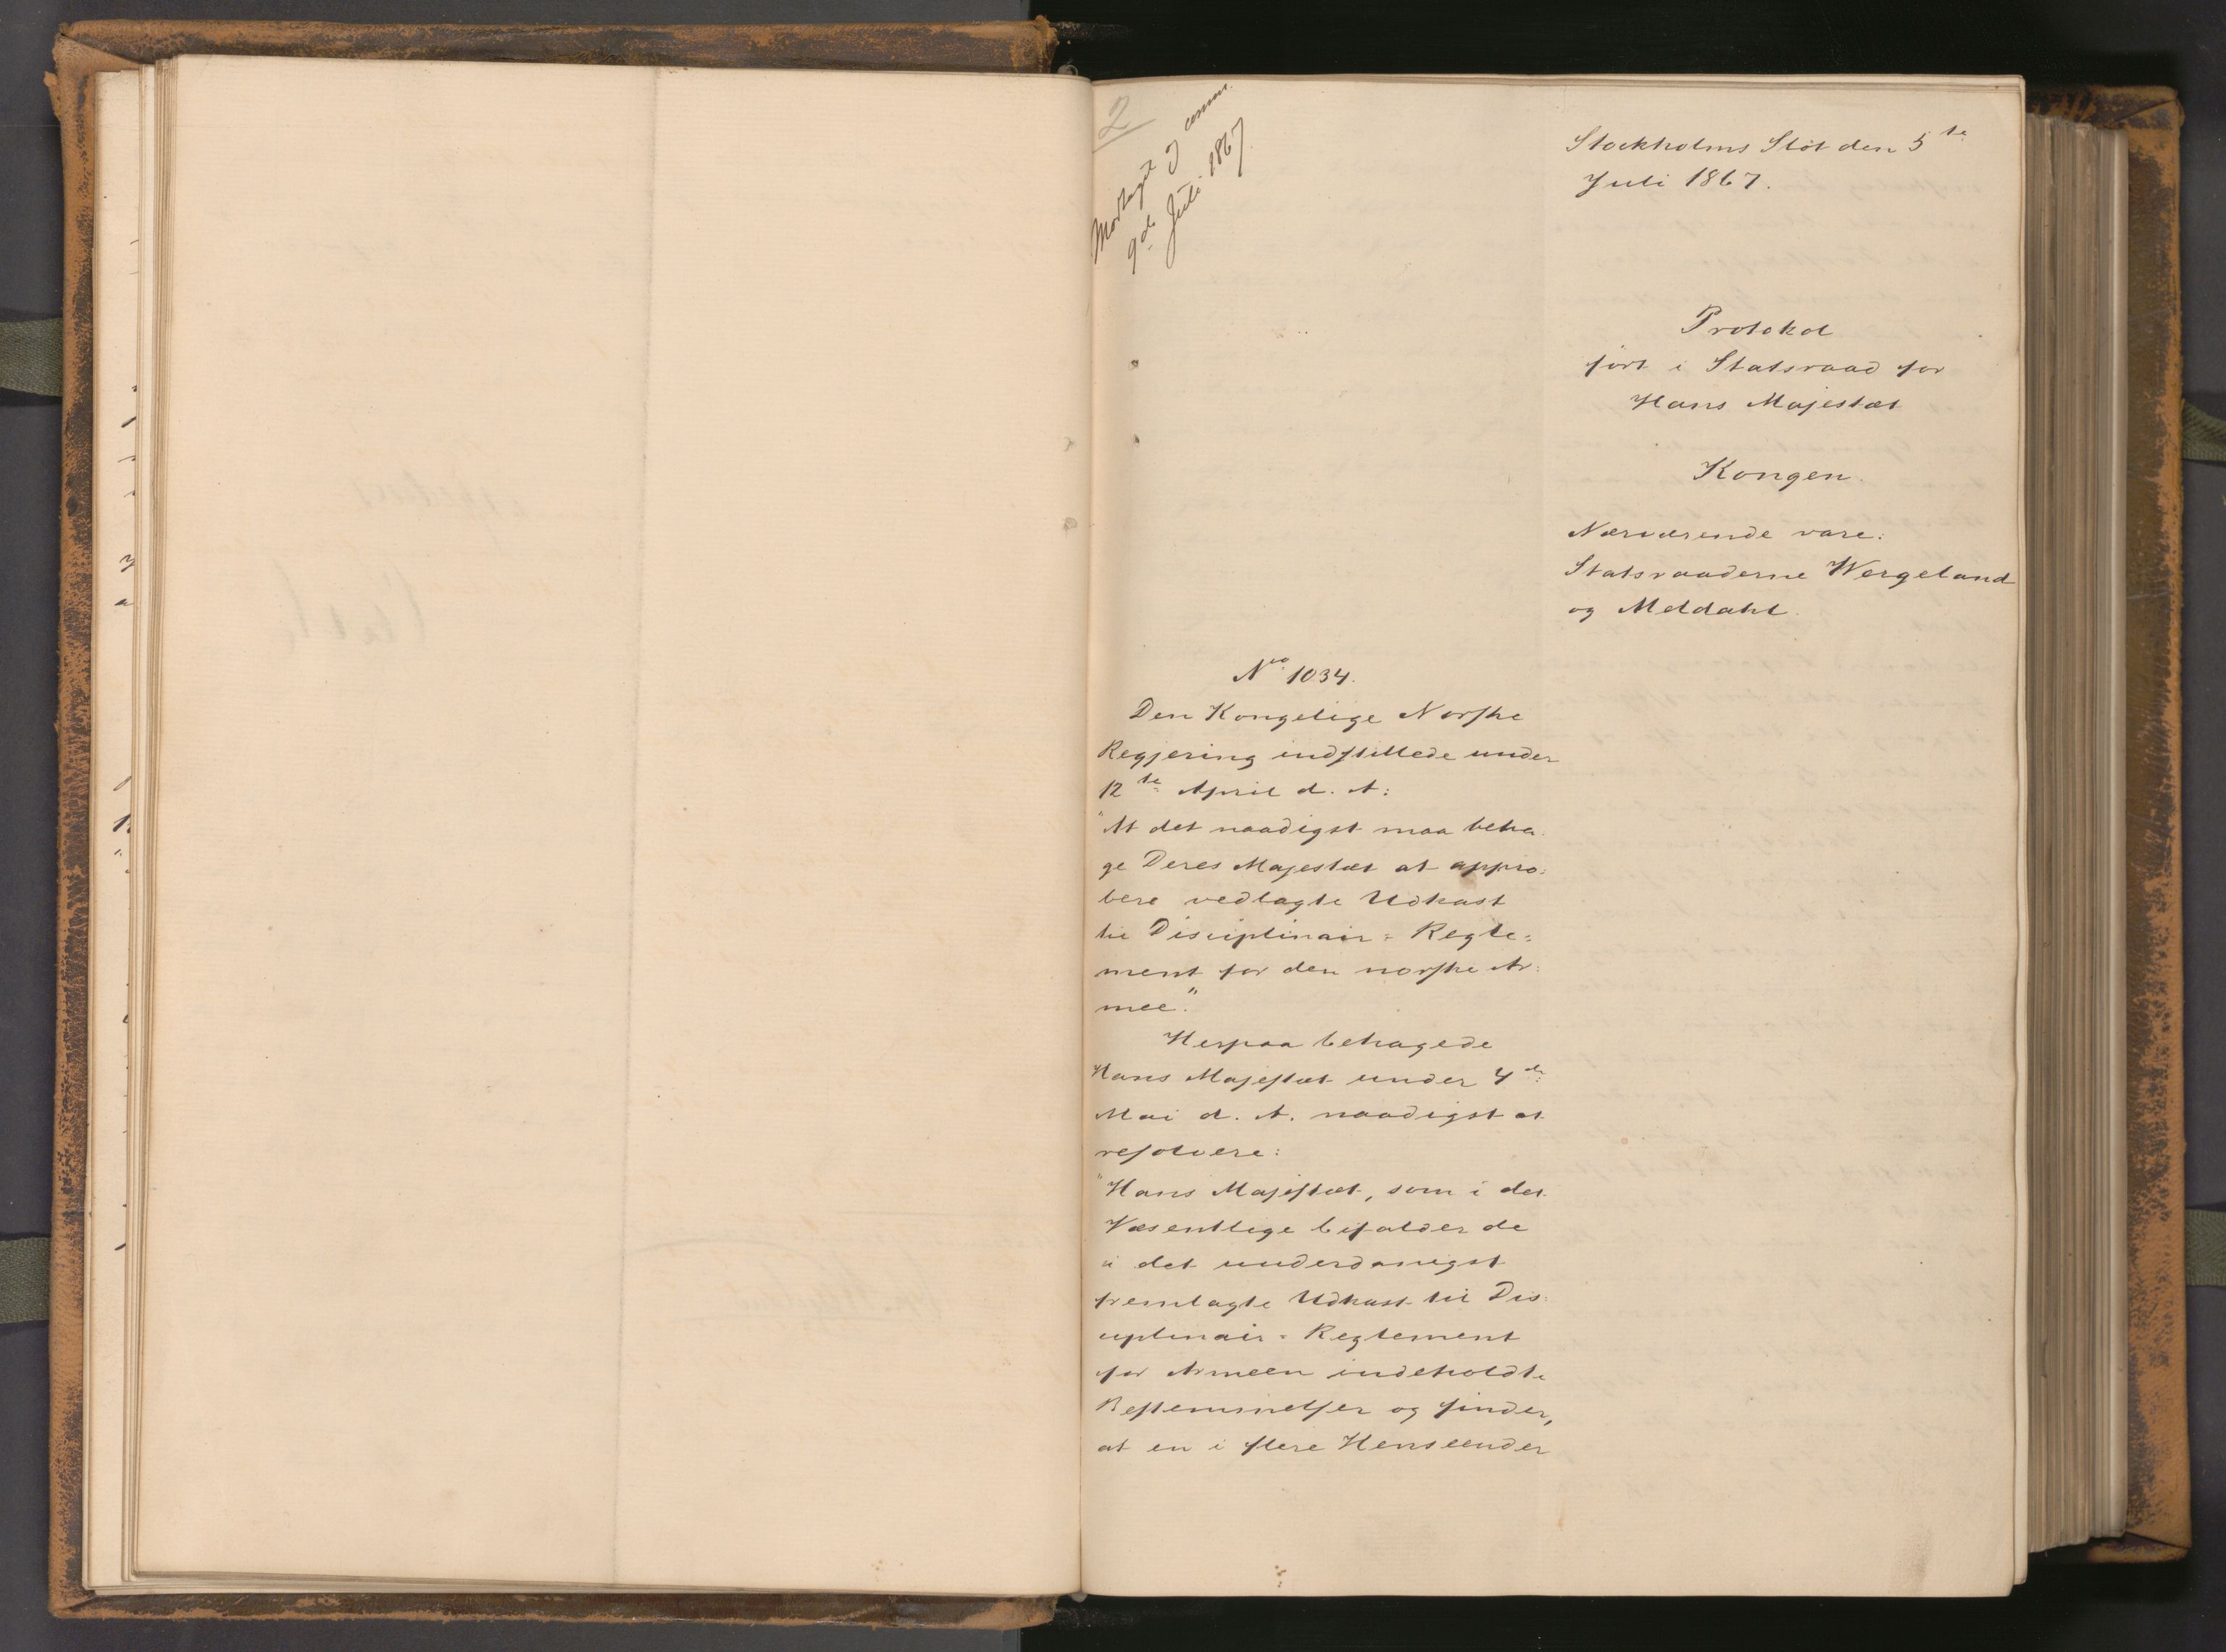 2
Modtaget
9de Juli 1867
Stockholms Slot den 5te
Juli 1867.
Protokol
ført i Statsraad for
Hans Majestæt
Kongen.
Nærværende vare:
Statsraaderne Wergeland
og Meldahl.
No 1034.
Den Kongelige Norske
Regjering indstillede under
12te April d. A:
"At det naadigst maa beha-
ge Deres Majestæt at appro-
bere vedlagte Udkast
til Disciplinair-Regle-
ment for den norske Ar-
mee."
Herpaa behagede
Hans Majestæt under 4de
Mai d. A. naadigst at
resolvere:
"Hans Majestæt, som i det
Væsentlige bifalder de
i det underdanigst
fremlagte Udkast til Dis-
ciplinair-Reglement
for Armeen indeholdte
Bestemmelser og finder,
at en i flere Henseender